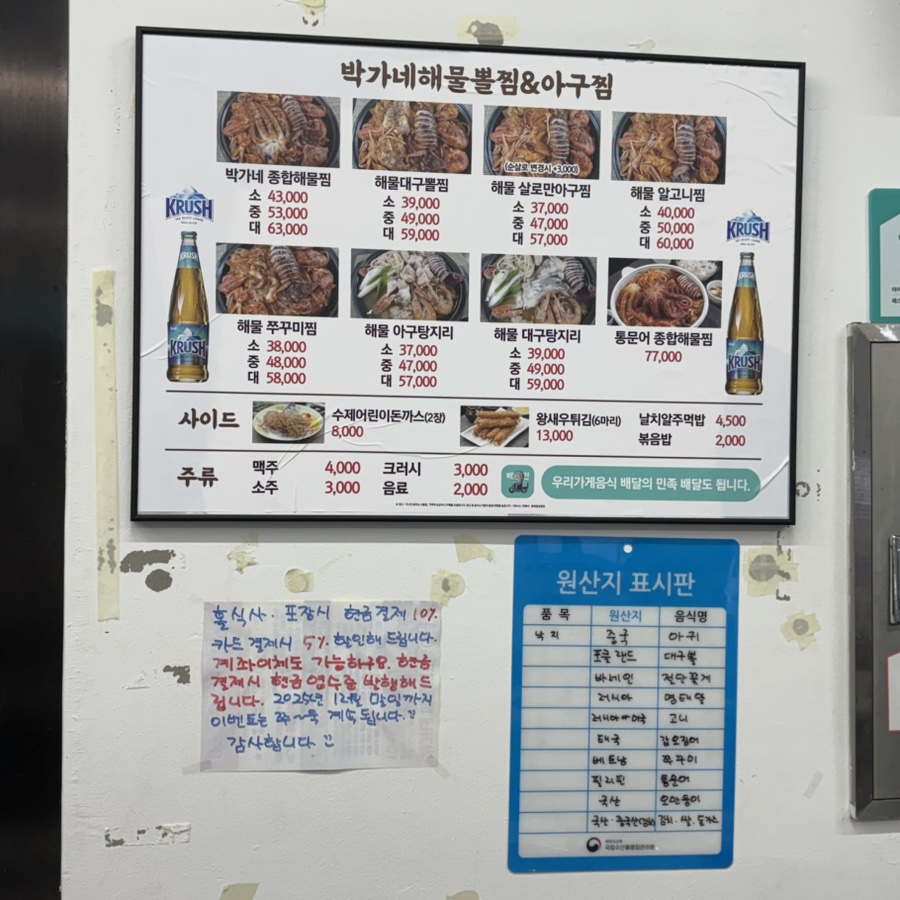 박가네해물뽈찜&아구찜
(순살로 변경시 +3,000)
박가네 종합해물찜
소 43,000
중 53,000
대 63,000
해물대구뽈찜
소 39,000
중 49,000
대 59,000
해물 살로만아구찜
소 37,000
중 47,000
대 57,000
해물 알고니찜
소 40,000
중 50,000
대 60,000
KRUSH
KRUSH
해물 쭈꾸미찜
소 38,000
중 48,000
대 58,000
해물 아구탕지리
소 37,000
중 47,000
대 57,000
해물 대구탕지리
소 39,000
중 49,000
대 59,000
통문어 종합해물찜
77,000
KRUSH
KRUSH
사이드
수제어린이돈까스(2장)
8,000
왕새우튀김(6마리)
13,000
날치알주먹밥 4,500
볶음밥 2,000
주류
맥주 4,000
소주 3,000
크러시 3,000
음료 2,000
우리가게음식 배달의 민족 배달도 됩니다.
홀식사·포장시 현금결제 10%
카드결제시 5% 할인해드립니다.
계좌이체도 가능하구요. 현금
결제시 현금영수증 발행해드
립니다. 2025년 12월 말일까지
이벤트는 쭈~욱 계속됩니다.
감사합니다
원산지 표시판
품 목 원산지 음식명
낙지 중국 아귀
포클랜드 대구뽈
바레인 절단꽃게
러시아 명태알
고니
태국 갑오징어
베트남 쭈꾸미
필리핀 통문어
국산 오만둥이
국산·중국산 김치·쌀·돈가스
국립수산물품질관리원